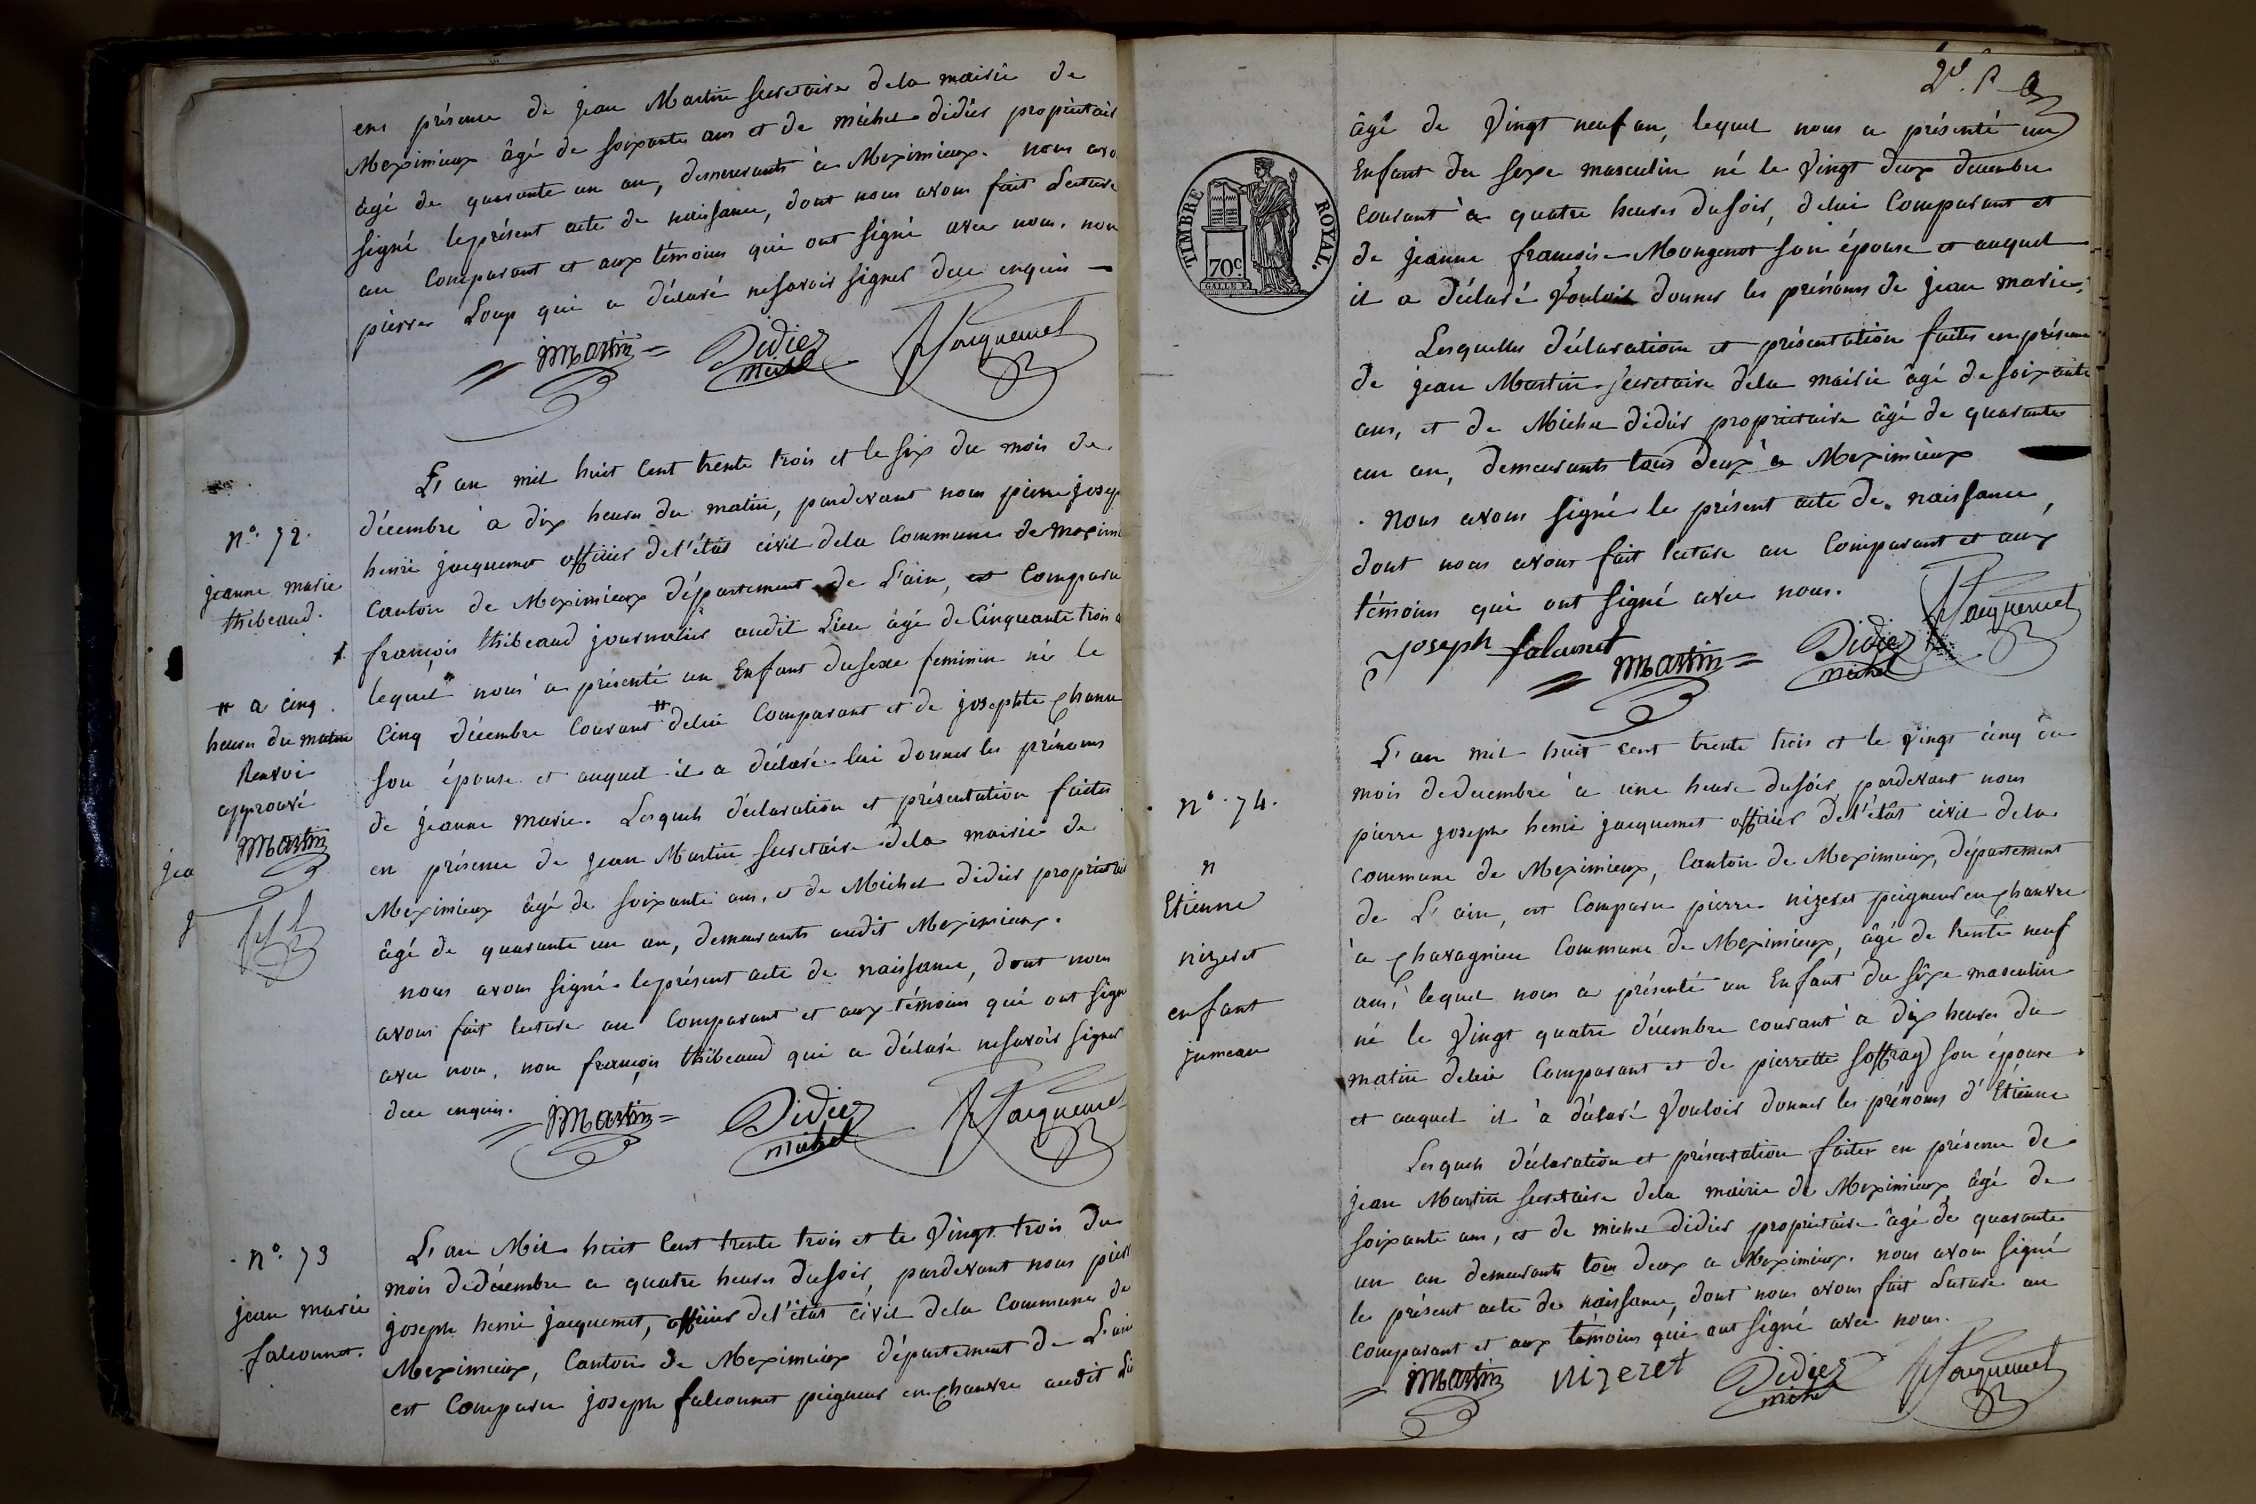 en présence de jean Martin secretaire dela mairie de
Meximieux âgé de soixante ans et de michel didier propriétaire
âgé de quarante un an, demeurants à Meximieux. nous avo
signé leprésent acte de naissance, dont nous avons fait Lecture
au Comparant et aux témoins qui ont signé avec nous. non
pierre Loup qui a déclaré nesavoir signer dece enquis
Martin Didier Michel Jacquemet
n°. 72.
jeanne marie
thibeaud.
# a cinq
heures du matin
Renvoi
approuvé
Martin
jea
L'an mil huit Cent trente trois et le six du mois de
décembre à dix heures du matin, pardevant nous pierre josep
henri jacquemet officier del'état civil dela Commune de Meximi
Canton de Meximieux département de L'ain, est Comparu
françois thibeaud journalier audit Lieu âgé de Cinquante trois a
lequel nous a présenté un Enfant dusexe feminin né le
Cinq décembre Courant # delui Comparant et de josephte Chanu
son épouse et auquel il a déclaré lui donner les prénoms
de jeanne marie. Lesquels déclaration et présentation faites
en présence de jean Martin secretaire dela mairie de
Meximieux âgé de soixante ans, et de Michel didier propriétaire
âgé de quarante un an, demeurants audit Meximieux.
nous avons signé leprésent acte de naissance, dont nous
avons fait lecture au Comparant et aux témoins qui ont signé
avec nous, non françois thibeaud qui a déclaré nesavoir signer
dece enquis.
Martin Didier michel Jacquemet
n°. 73
jean marie
falconnet.
L'an Mil huit Cent trente trois et le Vingt trois du
mois dedécembre a quatre heures dusoir, pardevant nous pierre
joseph henri jacquemet, officier del'état civil dela Commune de
Meximieux, Canton de Meximieux département de L'ain
est Comparu joseph falconnet peigneur en Chanvre audit Li
TIMBRE ROYAL.
70c
âgé de Vingt neuf an, lequel nous a présenté un
Enfant du sexe masculin né le Vingt deux decembre
Courant à quatre heures dusoir, delui Comparant et
de jeanne françoise Mongenot son épouse et auquel
il a déclaré Vouloir donner les prénoms de jean marie.
Lesquelles déclaration et présentation faites enprésence
de jean Martin secretaire dela mairie âgé de soixante
ans, et de Michel didier propriétaire âgé de quarante
un an, demeurants tous deux à Meximieux
nous avons signé le présent acte de naissance,
dont nous avons fait lecture au Comparant et aux
témoins qui ont signé avec nous.
Joseph falconet Martin Didier Michel Jacquemet
n°. 74.
n
Etienne
nizeret
enfant
jumeau
L'an mil huit cent trente trois et le vingt cinq du
mois dedecembre à une heure dusoir, pardevant nous
pierre joseph henri jacquemet officier del'état civil dela
commune de Meximieux, Canton de Meximieux, département
de L'ain, est Comparu pierre nizeret peigneur en Chanvre
à Chavagnieu Commune de Meximieux, âgé de trente neuf
ans, lequel nous a présenté un Enfant du sexe masculin
né le Vingt quatre décembre courant à dix heures du
matin delui Comparant et de pierrette Soffray son épouse
et auquel il a déclaré Vouloir donner les prénoms d'Etienne
Lesquels déclaration et présentation faites en présence de
jean Martin secretaire dela mairie de Meximieux âgé de
soixante ans, et de michel didier propriétaire âgé de quarante
un an demeurants tous deux a Meximieux. nous avons signé
le présent acte de naissance, dont nous avons fait Lecture au
Comparant et aux témoins qui ont signé avec nous.
Martin nizeret Didier michel Jacquemet